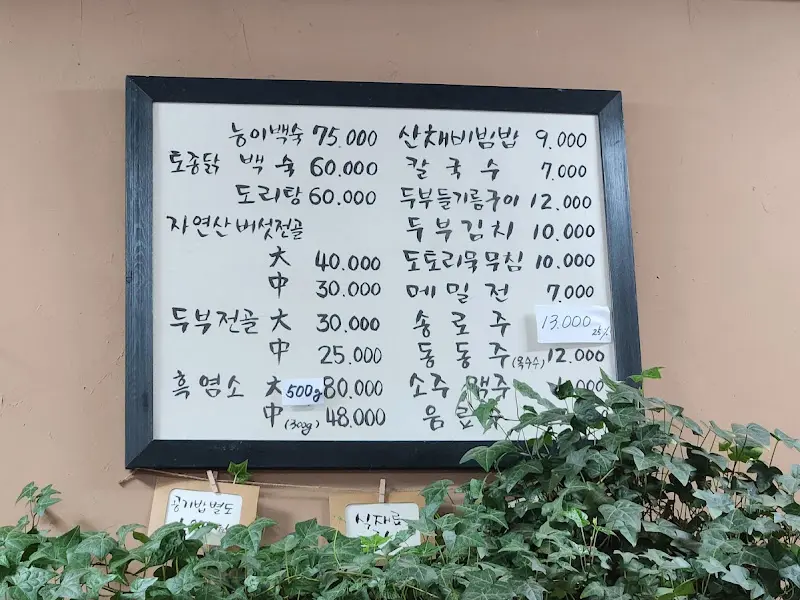 능이백숙 75.000
토종닭 백숙 60.000
도리탕 60.000
자연산버섯전골
大 40.000
中 30.000
두부전골 大 30.000
中 25.000
흑염소 大 500g 80.000
中 (300g) 48.000
산채비빔밥 9.000
칼국수 7.000
두부들기름구이 12.000
두부김치 10.000
도토리묵무침 10.000
메밀전 7.000
송로주 13.000 25%
동동주 (옥수수) 12.000
소주 맥주
음료
공기밥별도
식재료